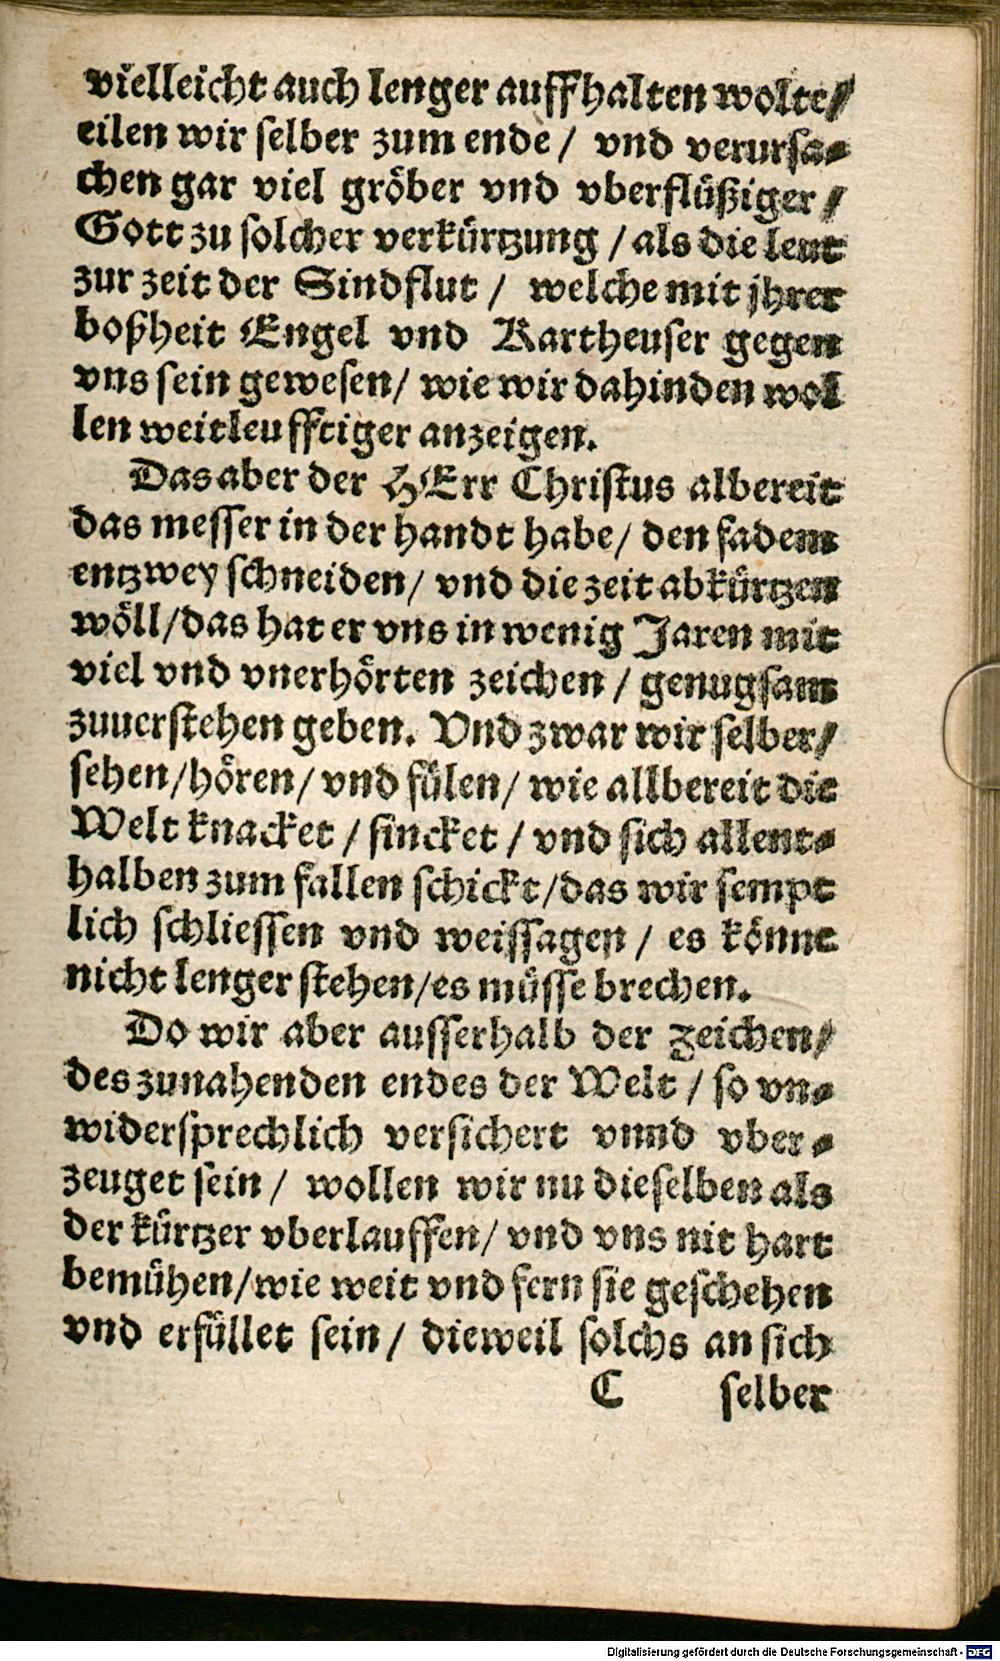 vielleicht auch lenger auffhalten wolte/
eilen wir selber zum ende / vnd verursa-
chen gar viel gröber vnd vberflüßiger /
Gott zu solcher verkürtzung / als die leut
zur zeit der Sindflut / welche mit jhrer
boßheit Engel vnd Kartheuser gegen
vns sein gewesen / wie wir dahinden wol
len weitleufftiger anzeigen.
Das aber der HErr Christus albereit
das messer in der handt habe / den fadem
entzwey schneiden / vnd die zeit abkürtzen
wöll / das hat er vns in wenig Jaren mit
viel vnd vnerhörten zeichen / genugsam
zuuerstehen geben. Vnd zwar wir selber /
sehen / hören / vnd fülen / wie allbereit die
Welt knacket / sincket / vnd sich allent-
halben zum fallen schickt / das wir sempt
lich schliessen vnd weissagen / es könne
nicht lenger stehen / es müsse brechen.
Do wir aber ausserhalb der zeichen /
des zunahenden endes der Welt / so vn-
widersprechlich versichert vnnd vber-
zeuget sein / wollen wir nu dieselben als
der kürtzer vberlauffen / vnd vns nit hart
bemühen / wie weit vnd fern sie geschehen
vnd erfüllet sein / dieweil solchs an sich
C selber
Digitalisierung gefördert durch die Deutsche Forschungsgemeinschaft - DFG